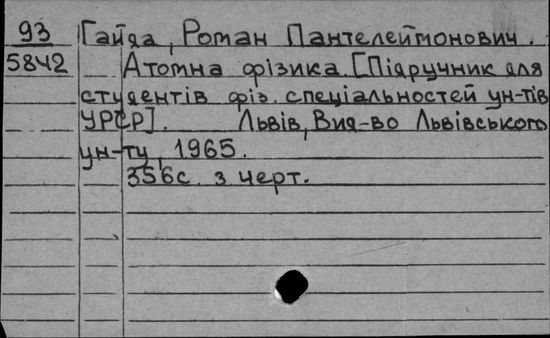 93 Гайда, Роман Пантелеймонович.
5842 Атомна фізика. [Підручник для
студентів фіз. спеціальностей ун-тів
УРСР]. Львів, Вид-во Львівського
ун-ту, 1965.
356с. з черт.